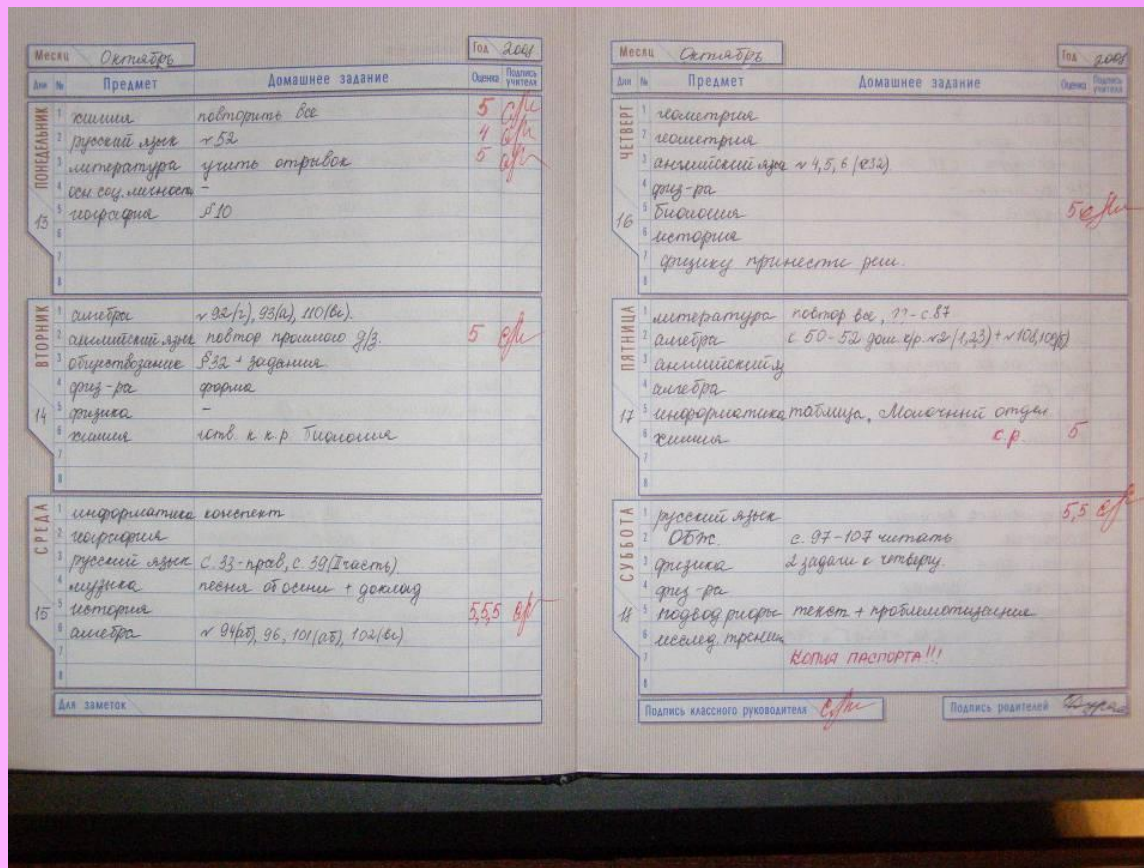 Месяц Октябрь Год 2008
Дни № Предмет Домашнее задание Оценка Подпись учителя
ПОНЕДЕЛЬНИК
13
1 химия повторить все 5
2 русский язык №52 4
3 литература учить отрывок 5
4 осн. соц. личности -
5 география §10
6
7
8
ВТОРНИК
14
1 алгебра №92(г), 93(а), 110(вг).
2 английский язык повтор прошлого д/з. 5
3 обществознание §32 + задания
4 физ-ра форма
5 физика -
6 химия готв. к к.р. Биология
7
8
СРЕДА
15
1 информатика конспект
2 география
3 русский язык с. 33-прав, с. 39(II часть)
4 музыка песня об осени + доклад
5 история 5,5,5
6 алгебра №94(аб), 96, 101(аб), 102(вг)
7
8
Для заметок
Месяц Октябрь Год 2008
Дни № Предмет Домашнее задание Оценка Подпись учителя
ЧЕТВЕРГ
16
1 геометрия
2 геометрия
3 английский язык №4,5,6 (с32)
4 физ-ра
5 биология 5
6 история
7 физику принести реш.
8
ПЯТНИЦА
17
1 литература повтор все, ??-с.87
2 алгебра с 50-52 дом. к/р. №2(1,2,3)+№108,109(б)
3 английский я
4 алгебра
5 информатика таблица, Молочный отдел
6 химия к.р. 5
7
8
СУББОТА
18
1 русский язык 5,5
2 ОБЖ с. 97-107 читать
3 физика 2 задачи к четвергу.
4 физ-ра
5 подвод текст + проблемотизация
6 исслед. трени
7 КОПИЯ ПАСПОРТА!!!
8
Подпись классного руководителя
Подпись родителей